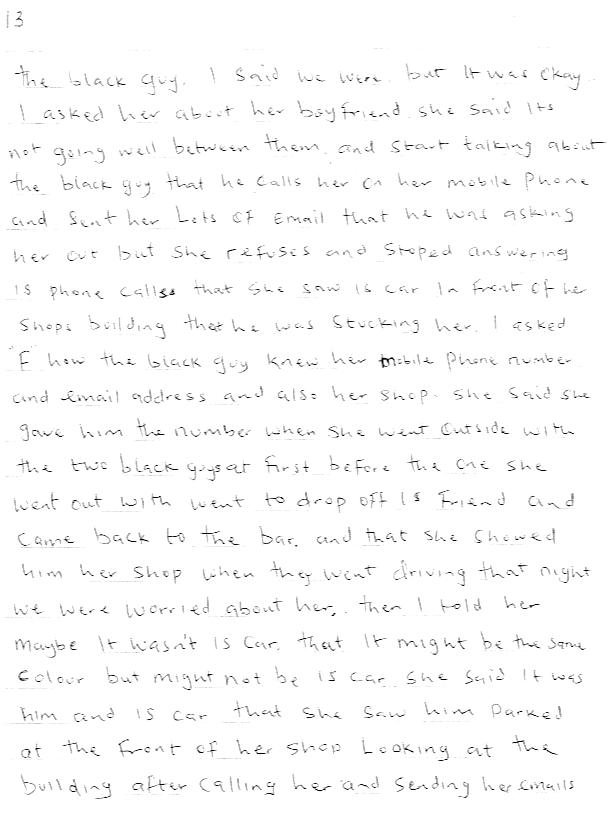 13
the black guy. I said we were. but It was Okay.
I asked her about her boyfriend. she said Its
not going well between them. and start talking about
the black guy that he calls her on her mobile Phone
and Sent her Lots of Email that he was asking
her out but she refuses and stoped answering
is phone calles that she saw is car In front of her
shops building that he was stucking her. I asked
F how the black guy knew her mobile Phone number
and email address and also her shop. she said she
gave him the number when she went outside with
the two black guys at first before the one she
went out with went to drop off is Friend and
came back to the bar. and that she showed
him her shop when they went driving that night
we were worried about her. then I told her
maybe It wasn't is car. that It might be the same
colour but might not be is car. she said It was
him and is car that she saw him Parked
at the front of her shop Looking at the
building after calling her and sending her emails